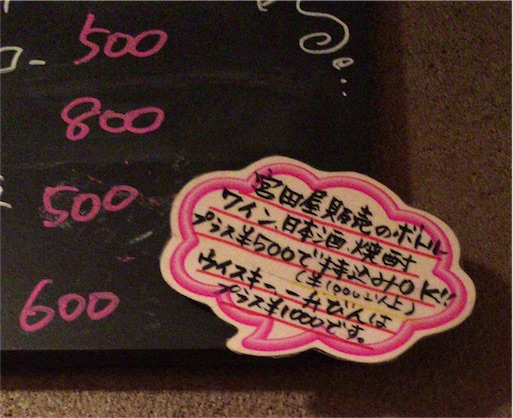 500
800
500
600
宮田屋販売のボトル
ワイン、日本酒、焼酎す
プラス¥500で持込みOK!!
(¥1000以上)
ウイスキー、一升びんは
プラス¥1000です。